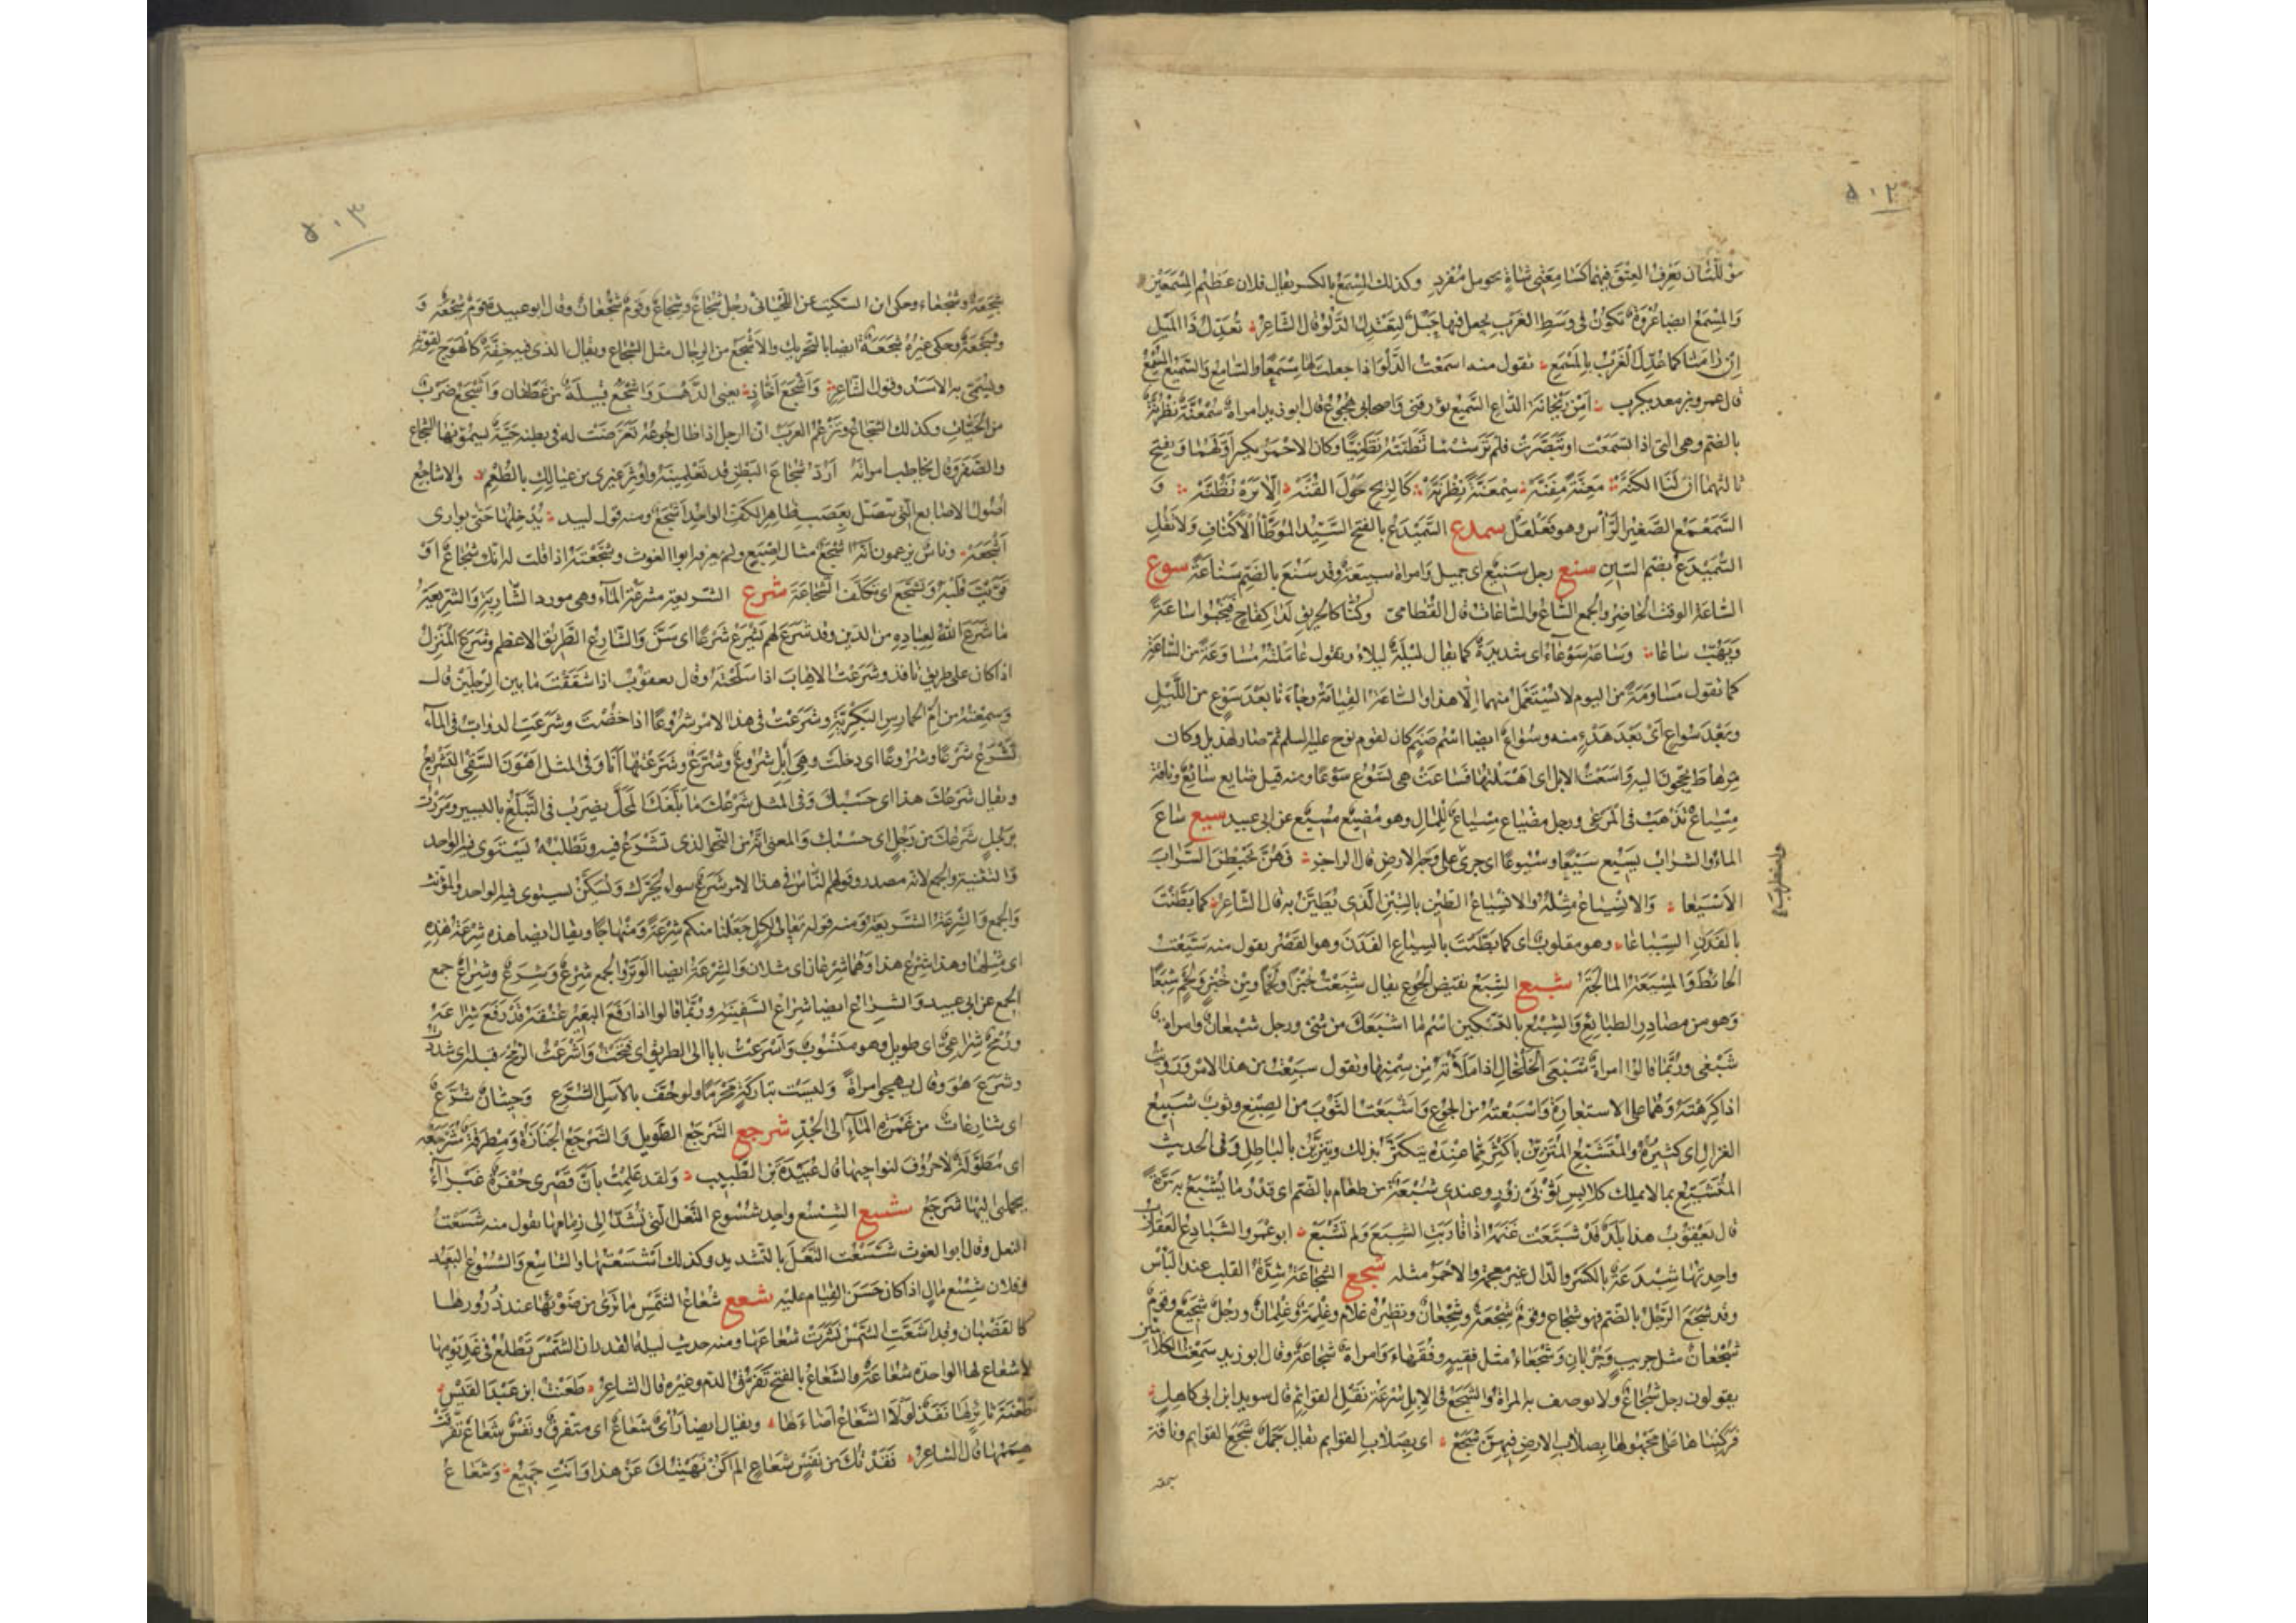 ٥٠٢
والمسمع ايضا عُرْوَةٌ تكون في وَسَطِ الغَرْبِ يجعل فيها حَبْلٌ لِيَعْتَدِلَ الدَّلْوُ قال الشاعر تُعَدِّلُ ذَا المَيْلِ
اِنْ رَامَنَا كما عُدِّلَ الْغَرْبُ بِالْمِسْمَعِ تقول منه اسمعت الدَّلْوَ اذا جعلت لها مِسْمَعًا والسَّامِعُ والسَّمِيعُ المُسْمِعُ
قال عمرو بن معدیكرب اَمِنْ رَيْحَانَةَ الدَّاعِى السَّمِيعُ يُؤَرِّقُنِى وَاَصْحَابِى هُجُوعُ قال ابو زيد امراة سُمْعُنَّةٌ نُظْرُنَّةٌ
بالضم وهى التى اذا تسمعت او تَبَصَّرَتْ فلم تَرَ شَيْئًا تَظَنَّتْهُ تَظَنِّيًا وكان الاحمر يكسر اَوَّلَهُما وَيفتح
ثالثهما اِنَّ لَنَا لَكَنَّهْ مِعَنَّةً مِفَنَّهْ سِمْعَنَّةً نِظْرَنَّهْ كَالرِّيحِ حَوْلَ القُنَّهْ اِلَّا تَرَهْ تَظُنَّهْ وَ
السَّمَعْمَعُ الصَّغِيرُ الرَّأْسِ وهو فَعَلْعَلٌ سمدع السَّمَيْدَعُ بالفتح السَّيِّدُ المُوَطَّأُ الْاَكْنَافِ وَلَا تقُلِ
السُّمَيْدَعُ بضم السّين سنع رجل سَنِيعٌ اى جميل وَامراة سنيعة وقد سَنُعَ بالضم سَنَاعَةً سوع
السّاعة الوقت الحَاضِرُ والجمع السَّاعُ والسّاعَاتُ قال القُطَامِىّ وكُنَّا كَالحَرِيقِ لَدَى كِفَاحٍ فَيَخْبُو سَاعَةً
وَيَهُبُّ سَاعَا وَسَاعَةٌ سَوْعَاءُ اى شديدة كما يقال لَيْلَةٌ لَيْلَاءُ وتقول عَامَلْتُهُ مُسَاوَعَةً من السَّاعَةِ
كما تقول مُيَاوَمَةً من اليوم لا يُسْتَعْمَلُ منهما اِلّا هذا والسّاعَةُ القِيَامَةُ وجَاءَنَا بَعْدَ سَوْعٍ من اللَّيْلِ
وَبَعْدَ سُوَاعٍ اَىْ بَعْدَ هَدْءٍ منه وسُوَاعٌ ايضا اسْمُ صَنَمٍ كان لقوم نوح عليه السلم ثمّ صَار لهذيل وكان
بِرُهَاطَ يَحُجُّونَ اليه وَاَسَعْتُ الابل اى اَهْمَلْتُهَا فَسَاعَتْ هى تَسُوعُ سَوْعًا ومنه قيل ضَايِعٌ سَايِعٌ وناقة
مِسْيَاعٌ تَذْهَبُ فى المَرْعَى ورجل مِضْيَاعٌ مِسْيَاعٌ لِلْمَالِ وهو مُضِيعٌ مُسِيعٌ عن ابى عبيد سيع سَاعَ
الماءُ والشراب يَسِيعُ سَيْعًا وسُيُوعًا اى جرى على وجه الارض قال الراجز فَهُنَّ يَخْبِطْنَ السَّرَابَ
الْاَسْيَعَا وَالانْسِيَاعُ مِثْلُهُ والسِّيَاعُ الطِّين بالتِّبْنِ الَّذِى يُطَيَّنُ بِهِ قال الشاعر كما بَطَّنْتَ
بِالفَدَنِ السَّيَاعَا وهو مقلوب اى كما بَطَّنْتَ بِالسَّيَاعِ الفَدَنَ وهو القَصْرُ تقول منه سَيَّعْتُ
الحَائِطَ وَالمِسْيَعَةُ المَالَجَةُ شبع الشِّبَعُ نقيض الجُوع يقال شَبِعْتُ خُبْزًا ولَحْمًا ومِنْ خُبْزٍ وَلَحْمٍ شِبَعًا
وَهو من مصادر الطبائع وَالشِّبْعُ بالتسكين اسْمُ مَا اَشْبَعَكَ من شىء ورجل شَبْعَانُ وامراة
شَبْعَى ورُبَّمَا قالوا امراة شَبْعَى الخَلْخَالِ اذا مَلَأَتْهُ مِنْ سِمَنِهَا وتقول شَبِعْتُ من هذا الامر وَرَوِيتُ
اذا كرهتَهُ وَهُمَا على الاستعارة وَاَشْبَعْتُهُ من الجُوعِ وَاَشْبَعْتُ الثَّوْبَ من الصِّبْغِ وثوب شَبِيعُ
الغزل اى كثيرُهُ وَالْمُتَشَبِّعُ المُتَزَيِّنُ بِاَكْثَرَ مِمَّا عِنْدَهُ يَتَكَثَّرُ بذلك ويتزيّن بالباطل وفى الحديث
المُتَشَبِّعُ بما لا يملك كَلَابِسِ ثَوْبَىْ زُورٍ وعندى شُبْعَةٌ من طعام بالضم اى قدر مَا يُشْبَعُ به مَرَّةً
قال يعقوب هذا بَلَدٌ قد شَبَّعَتْ غَنَمُهُ اذا قَارَبَتِ الشِّبَعَ وَلم تَشْبَعْ ابو عَمْرو الشَّبَادِعُ العَقَارِبُ
واحدتها شِبْدِعَةٌ بالكسر والدّال غير معجمة والاحمر مثله شجع الشَّجَاعَةُ شِدَّةُ القلب عند البَأْسِ
وقد شَجُعَ الرَّجُلُ بالضم فهو شُجَاعٌ وقوم شِجْعَةٌ وشِجْعَانٌ ونظيره غلام وغِلْمَةٌ وغِلْمَانٌ ورجل شَجِيعٌ وقوم
شُجْعَانٌ مثل جريب وَجُرْبَانٍ وَشُجَعَاءُ مثل فقيه وفُقَهَاءَ وَامراة شجاعة وقال ابو زيد سمعت الكلابيين
يقولون رجل شُجَاعٌ ولا يوصف به المراة والشَّجَعُ فى الابل سُرْعَةُ نَقْلِ القوائم قال سويد ابن ابى كاهل
فَرَكِبْنَاهَا عَلَى مَجْهُولِهَا بِصِلَابِ الارض فِيهِنَّ شَجَعْ اى بِصِلَابِ القوايم يقال جَمَلٌ شَجِعُ القوايم وناقة
٥٠٣
شَجِعَةٌ وشَجْعَاءُ وحكى ابن السكيت عن اللحيانى رجل شُجَاعٌ وشِجَاعٌ وَقَوْمٌ شُجْعَانٌ وقال ابو عبيد قوم شِجْعَةٌ وَ
وشَجْعَةٌ وحكى غيره شَجَعَةٌ ايضا بالتحريك والاَشْجَعُ من الرجال مثل الشجاع ويقال الذى فيه خِفَّةٌ كالهَوَجِ لِقوته
ويُسَمَّى به الاسد وقول الشاعر وَاَشْجَعَ اَخَّاذٍ يعنى الدَّهْرَ وَاَشْجَعُ قبيلة من غطفان وَالشُّجَاعُ ضَرْبٌ
من الحَيَّاتِ وكذلك الشِّجَاعُ وتَزْعُمُ العَرَبُ ان الرجل اذا طال جُوعُهُ تَعَرَّضَتْ له فى بطنه حَيَّةٌ يسمونها الشجاع
والصَّفَرَ وقال يخاطب امراته اَرُدُّ شُجَاعَ البَطْنِ قد تَعْلَمِينَهُ واُوثِرُ غيرى من عِيالِكِ بِالطُّعْمِ والاشاجع
اُصُولُ الاصابع التى تتصل بعصب ظاهر الكف الواحد اَشْجَعُ ومنه قول لبيد يُدْخِلُهَا حَتَّى يُوَارِى
اَشْجَعَهْ وناس يزعمون انه اِشْجَعٌ مثال اِصْبَعٍ ولم يعرفه ابو الغوث وشَجَّعْتُهُ اذا قلت له انك شُجَاعٌ اَوْ
قَوَّيْتَ قلبه وتَشَجَّعَ اى تكلّف الشَّجَاعَةَ شرع الشريعة مَشْرَعَةُ المَاءِ وهى مورد الشاربة والشريعة
مَا شَرَعَ اللهُ لِعِبَادِهِ من الدّين وقد شَرَعَ لهم يَشْرَعُ شَرْعًا اى سَنَّ وَالشَّارِعُ الطَّرِيقُ الاعظم وشَرَعَ المَنْزِلُ
اذا كان على طريق نافذ وشَرَعْتُ الاهابَ اذا سَلَخْتَهُ وقال يعقوب اذا شَقَقْتَ ما بين الرجلين قال
وسمعته من اُمِّ الحُمَارِسِ البَكْرِيَّةِ وشَرَعْتُ فى هذا الامر شُرُوعًا اذا خُضْتَ وشَرَعَتِ الدوابُّ فى الماء
تَشْرَعُ شَرْعًا وشُرُوعًا اى دخلت وهى اِبِلٌ شُرُوعٌ وشُرَّعٌ وشَرَّعْتُهَا اَنَا وَفى المثل اَهْوَنُ السَّقْىِ التَّشْرِيعُ
ويقال شَرْعُكَ هذا اى حَسْبُكَ وَفى المثل شَرْعُكَ مَا بَلَّغَكَ المَحَلَّ يضرب فى التَّبَلُّغِ باليسير ومَرَرْتُ
بِرَجُلٍ شَرْعِكَ مِن رَجُلٍ اى حَسْبِكَ وَالمعنى انه من النحو الذى تَشْرَعُ فيه وتطلبه يستوى فيه الواحد
وَالتثنية والجمع لانه مصدر وقولهم النّاس فى هذا الامر شَرَعٌ سواء يُحَرَّكُ ويُسَكَّنُ يستوى فيه الواحد والمؤنّث
وَالجمع وَالشِّرْعَةُ الشريعة ومنه قوله تعالى لكلٍّ جَعَلْنَا منكم شِرْعَةً وَمِنْهَاجًا ويقال ايضا هذه شِرْعَةُ هٰذِهِ
اى مثلها وهذا شِرْعُ هذا وَهُمَا شِرْعَانِ اى مثلان وَالشِّرْعَةُ ايضا الوَتَرُ والجمع شِرْعٌ وَشِرَعٌ وشِرَاعٌ جمع
الجمع عن ابى عبيد وَالشِّرَاعُ ايضا شِرَاعُ السَّفِينَةِ ورُبَّمَا قالوا اذا رفع البعير عنقه قد رفع شراعه
ورُمْحٌ شِرَاعِىٌّ اى طويل وهو منسوب وَاَشْرَعْتُ بابا الى الطريق اى فَتَحْتُ وَاَشْرَعْتُ الرمح قبله اى سَدَّدْتُ
وشَرَعَ هُوَ وقال يهجو امراة وَلَيْسَتْ بِتَارِكَةٍ مَحْرَمًا وَلَوْ حُفَّ بِالْاَسَلِ الشُّرَّعِ وَحِيتَانٌ شُرَّعٌ
اى شارعات من غَمْرَةِ المَاءِ الى الجُدِّ شرجع الشَّرْجَعُ الطَّوِيلُ وَالشَّرْجَعُ الجَنَازَةُ وَمِطْرَقَةٌ مُشَرْجَعَةٌ
اى مُطَوَّلَةٌ لَا حُرُوفَ لنواحيها قال عَبْدَةُ بْنُ الطَّبِيبِ وَلَقَدْ عَلِمْتُ بِاَنَّ قَصْرِى حُفْرَةٌ غَبْرَاءُ
يحملنى اليها شَرْجَعُ شسع الشِّسْعُ واحد شُسُوعِ النَّعْلِ الَّتِى تُشَدُّ الى زِمَامِهَا تقول منه شَسَعْتُ
النعل وقال ابو الغوث شَسَّعْتُ النَّعْلَ بالتشديد وكذلك اَشْسَعْتُهَا والشَّاسِعُ وَالشَّسُوعُ البَعِيدُ
وفلان شِسْعُ مَالٍ اذا كان حَسَنَ القيام عليه شعع شُعَاعُ الشَّمْسِ ما تَرَى من ضَوْئِهَا عند ذُرُورِهَا
كالقضبان وقد اَشَعَّتِ الشَّمْسُ نَشَرَتْ شُعَاعَهَا ومنه حديث ليلة القدر ان الشَّمْسَ تَطْلُعُ فى غَدِ يَوْمِهَا
لا شُعَاعَ لها الواحدة شُعَاعَةٌ والشَّعَاعُ بالفتح تَفَرُّقُ الدّم وغيره قال الشاعر طَعَنْتُ ابن عَبْدِ القَيْسِ
طَعْنَةَ ثَائِرٍ لَهَا نَفَذٌ لَوْلَا الشَّعَاعُ اَضَاءَهَا ويقال ايضا رَاْىٌ شَعَاعٌ اى متفرق ونَفْسٌ شَعَاعٌ تَفَرَّقَتْ
هِمَمُهَا قال الشاعر فَقَدْتُكِ مِنْ نَفْسٍ شَعَاعٍ اَلَمْ اَكُنْ نَهَيْتُكِ عَنْ هذا وَاَنْتِ جَمِيعُ وَشُعَاعُ